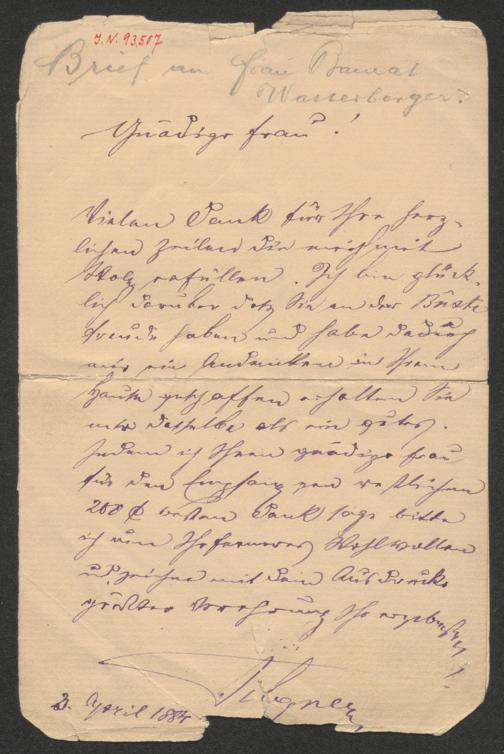 I.N. 93.507
Brief an Frau Baurat
Wasserberger.
Gnädige Frau!
Vielen Dank für Ihre herz-
lichen Zeilen die mich mit
Stolz erfüllen. Ich bin glück-
lich darüber daß Sie an der Büste
Freude haben und habe dadurch
mir ein Andenken in Ihrem
Hause geschaffen erhalten Sie
mir dasselbe als ein gutes.
Indem ich Ihnen gnädige Frau
für den Empfang der restlichen
200 f besten Dank sage bitte
ich um Ihr ferneres Wohlwollen
und zeichne mit dem Ausdrucke
größter Verehrung Ihr ergebenster
Tilgner
3. April 1884